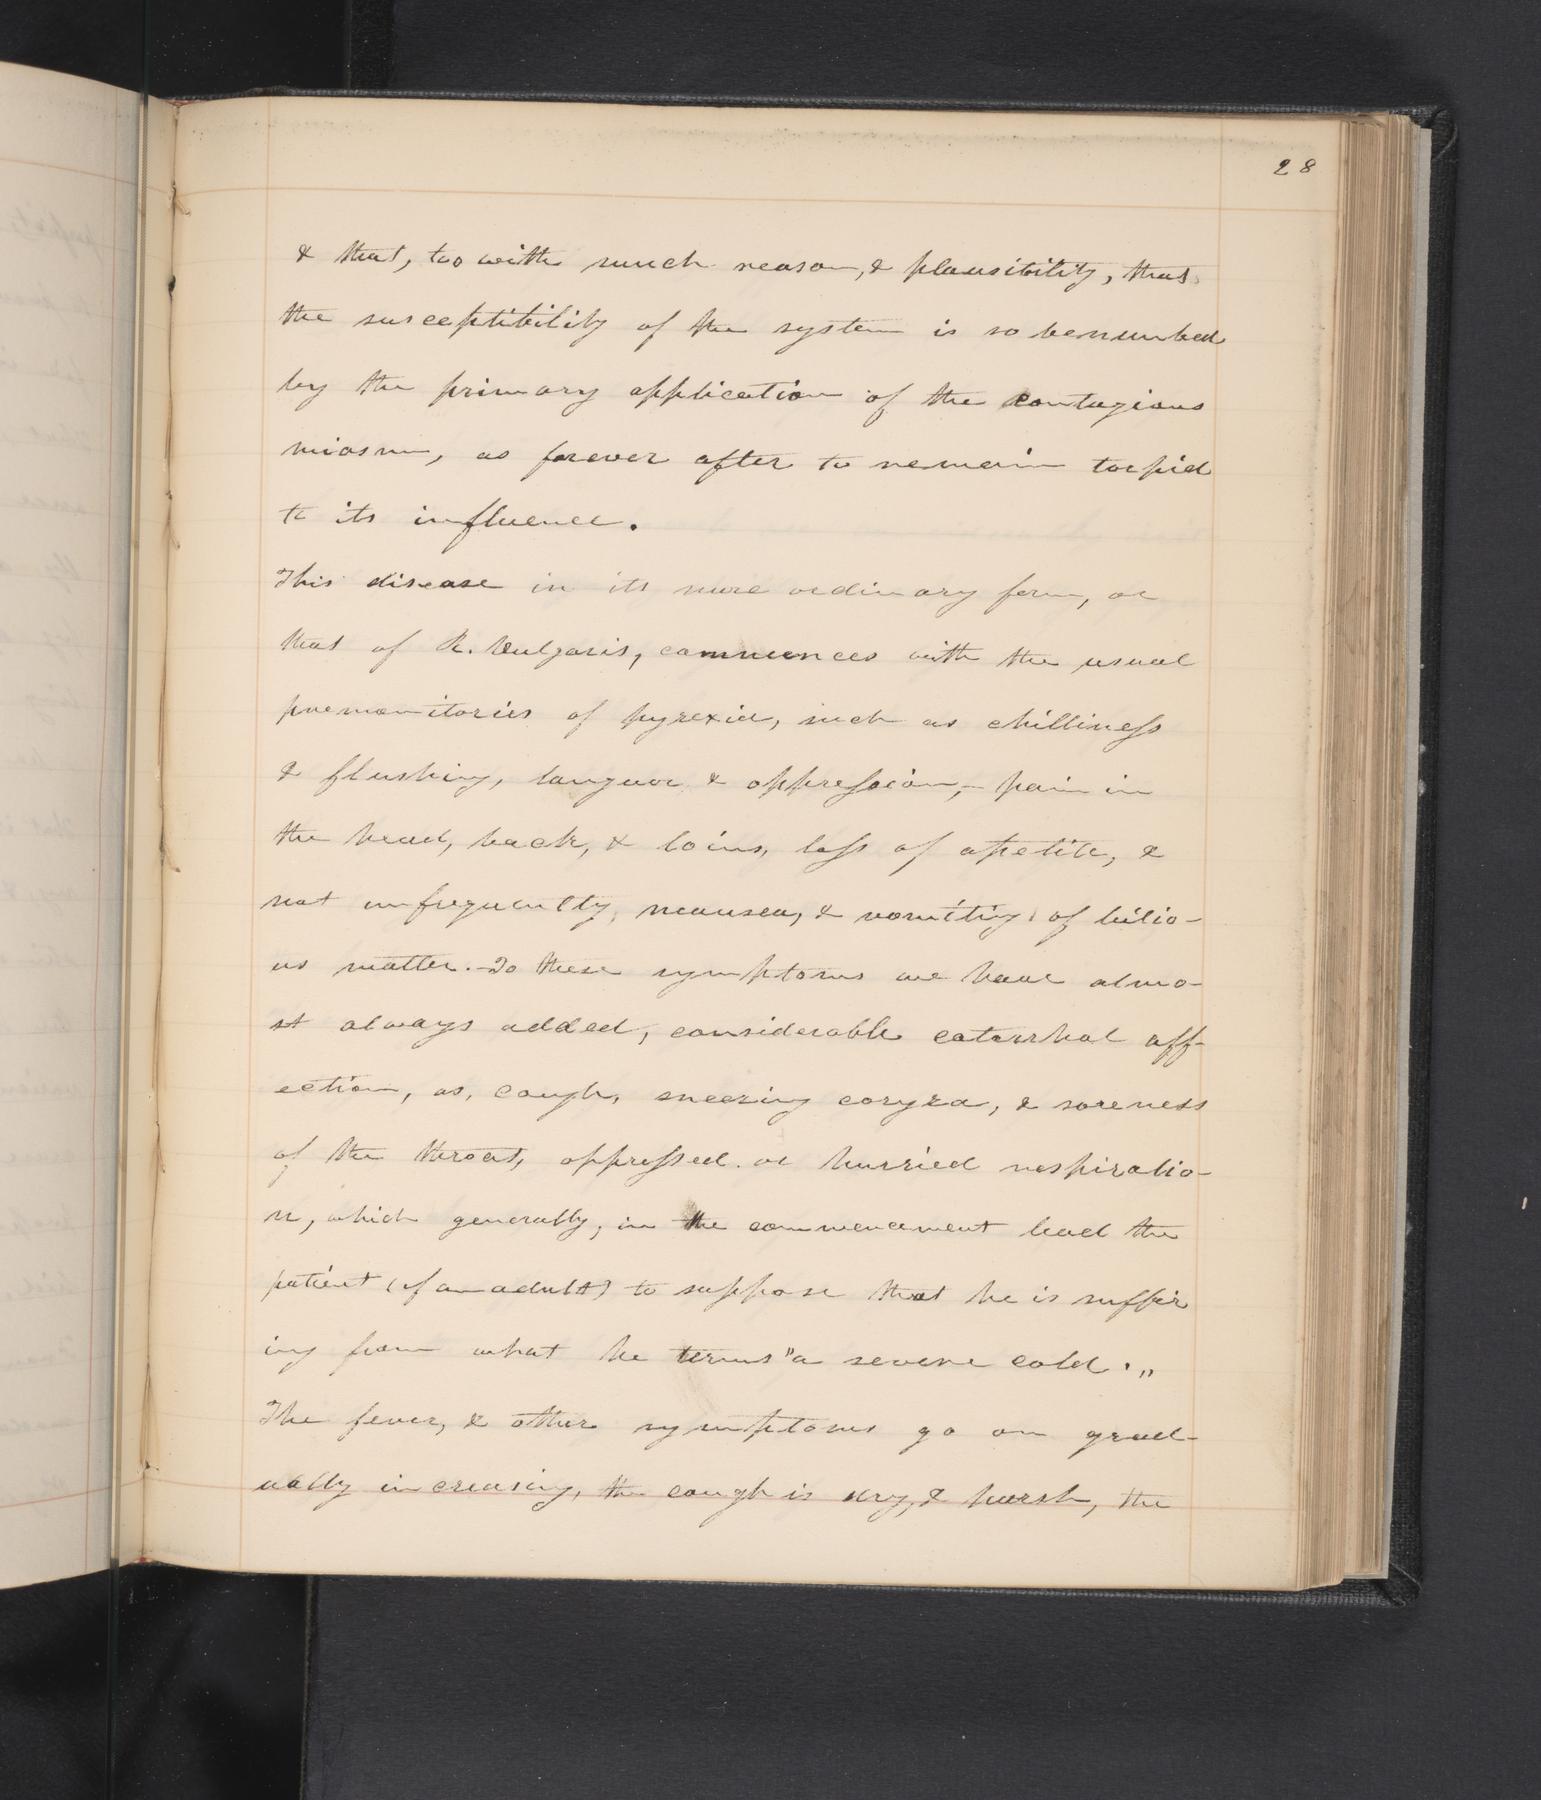 28
& that, too with much reason, & plausibility, that
the susceptibility of the system is so benumbed
by the primary application of the contagious
miasm, as forever after to remain torpid
to its influence.
This disease in its more ordinary form, or
that of R. Vulgaris, commences with the usual
premonitories of pyrexia, such as chilliness
& flushing, languor & oppression,- pain in
the head, back, & loins, loss of apetite, &
not unfrequently, neausea, & vomiting of bilio-
us matter.- To these symptoms we have almo-
st always added, considerable catarrhal aff-
ection, as, cough, sneezing coryza, & soreness
of the throat, oppressed or hurried respiratio-
n, which generally, in the commencement lead the
patient (if an adult) to suppose that he is suffer
ing from what he terms "a severe cold."
The fever, & other symptoms go on grad-
ually increasing, the cough is dry, & harsh, the